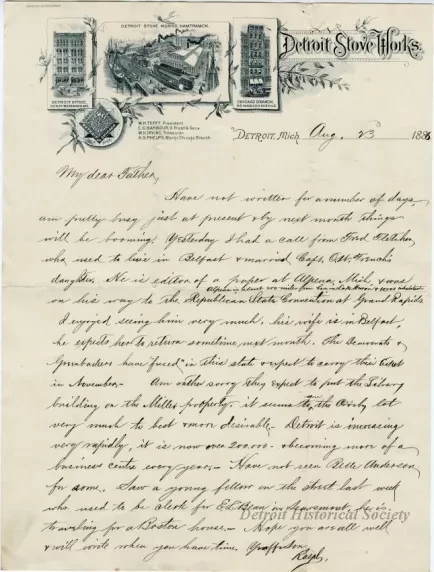 DETROIT STOVE WORKS, HAMTRAMCK.
Detroit Stove Works.
DETROIT OFFICE,
CHICAGO BRANCH,
W.H. TEFFT, President
E.S. BARBOUR, V. Prest & Secy
W.N. IRVINE, Treasurer
A.G. PHELPS, Mangr Chicago Branch
DETROIT, Mich Aug. 23 1886
My dear Father,
Have not written for a number of days,
am pretty busy just at present & by next month things
will be booming! Yesterday I had a call from Fred Fletcher,
who used to live in Belfast & married Capt. French's
daughter. He is editor of a paper at Alpena, Mich, & was
Alpena is about 200 miles from here on Lake Huron & inhabitants
on his way to the Republican State Convention at Grand Rapids
I enjoyed seeing him very much, his wife is in Belfast,
he expects her to return sometime next month. The Democrats &
Greenbackers have "fused" in this state & expect to carry this ticket
in November. Am rather sorry they expect to put the Library
building on the Miller property. it seems to me the Crosby lot
very much to best & more desirable. Detroit is increasing
very rapidly, it is now over 200,000 - & becoming more of a
business centre every year. Have not seen Belle Anderson
for some. Saw a young fellow on the street last week
who used to be clerk for E.L. Bean in Searsmont, he is
traveling for a Boston house. Hope you are all well
& will write when you have time. Yr aff. son
Ralph.
Detroit Historical Society